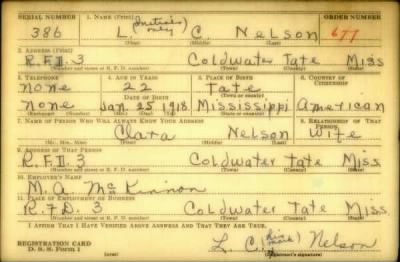 SERIAL NUMBER 1. NAME (Print) ORDER NUMBER
386 L. (initials only) C. Nelson 677
(First) (Middle) (Last)
2. ADDRESS (Print)
R.F.D. 3 Coldwater Tate Miss
(Number and street or R. F. D. number) (Town) (County) (State)
3. TELEPHONE 4. AGE IN YEARS 5. PLACE OF BIRTH 6. COUNTRY OF CITIZENSHIP
none 22 Tate
DATE OF BIRTH (Town or county)
none Jan. 25 1918 Mississippi American
(Exchange) (Number) (Mo.) (Day) (Yr.) (State or country)
7. NAME OF PERSON WHO WILL ALWAYS KNOW YOUR ADDRESS 8. RELATIONSHIP OF THAT PERSON
Clara Nelson Wife
(Mr., Mrs., Miss) (First) (Middle) (Last)
9. ADDRESS OF THAT PERSON
R.F.D. 3 Coldwater Tate Miss.
(Number and street or R. F. D. number) (Town) (County) (State)
10. EMPLOYER'S NAME
M. A. McKinnon
11. PLACE OF EMPLOYMENT OR BUSINESS
R.F.D. 3 Coldwater Tate Miss.
(Number and street or R. F. D. number) (Town) (County) (State)
I AFFIRM THAT I HAVE VERIFIED ABOVE ANSWERS AND THAT THEY ARE TRUE.
REGISTRATION CARD L. C. (his mark) Nelson
D. S. S. Form 1 (over) (Registrant's signature)